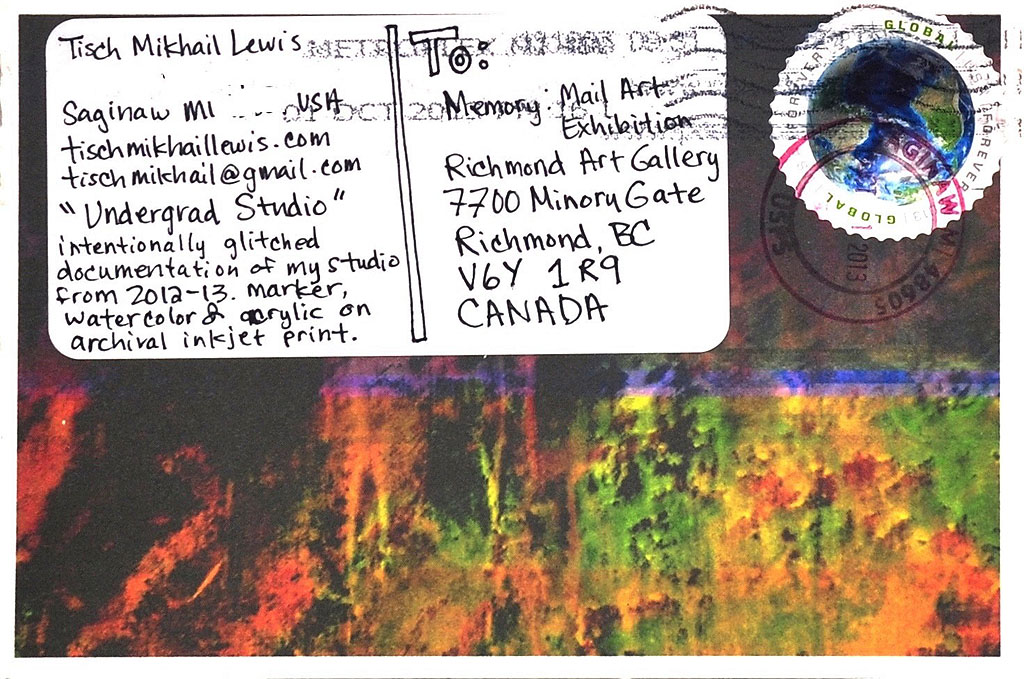 Tisch Mikhail Lewis
Saginaw MI USA
tischmikhaillewis.com
tischmikhail@gmail.com
"Undergrad Studio"
intentionally glitched
documentation of my studio
from 2012-13. marker,
watercolor & acrylic on
archival inkjet print.
To:
Memory Mail Art
Exhibition
Richmond Art Gallery
7700 Minory Gate
Richmond, BC
V6Y 1R9
CANADA
OCT
GLOBAL
FOREVER
USA
FOREVER
GLOBAL
SAGINAW MI 48605
USPS
2013